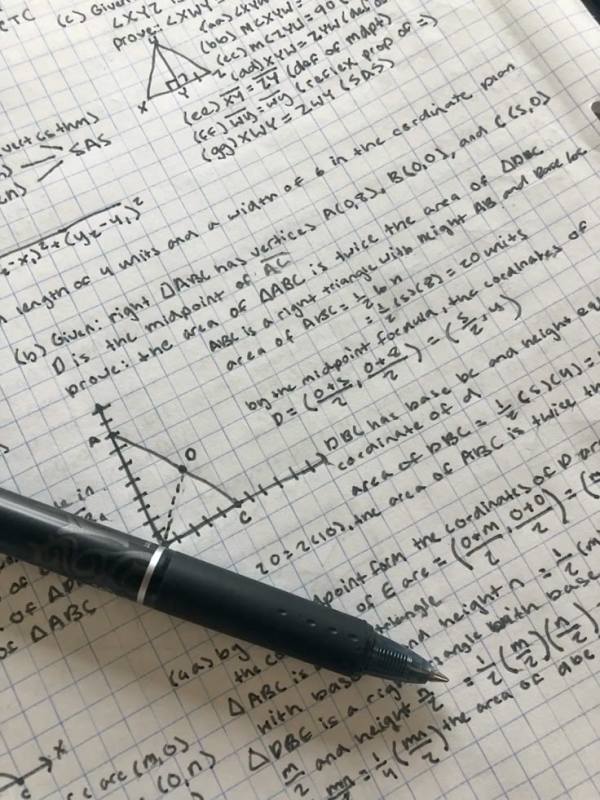 CTC
(c) Given
∠XYZ
prove: ∠XWY
X Y Z
(aa) ∠XYW
(bb) m∠XYW = 90
(cc) m∠ZYW = 90
(dd) XYW = ZYW
(ee) XY = ZY (def of mdpt)
(ff) WY = WY (reflex prop of =)
(gg) XWY = ZWY (SAS)
SAS
z-x₁)² + (y₂-y₁)²
length of 4 units and a width of 6 in the cordinate plan
(b) Given: right △ABC has vertices A(0,8), B(0,0), and C(5,0)
D is the midpoint of AC
prove: the area of △ABC is twice the area of △DBC
ABC is a right triangle with height AB and base bc
area of ABC = ½ b·h
= ½(5)(8) = 20 units
by the midpoint formula, the cordinates of
D = (0+5/2, 0+8/2) = (5/2, 4)
A D C
DBC has base bc and height eq
cordinate of d
area of DBC = ½(5)(4) =
20 = 2(10), the area of ABC is twice th
dpoint form the coordinates of D are
of E are = (0+m/2, 0+0/2) = (
triangle
nd height n = ½(m)
(aa) by
the co
△ABC is
with bas
△DBE is a rig angle with base
m/2 and height n/2 = ½(m/2)(n/2)
mn = ¼(mn/2) the area of abc
of △D
of △ABC
X
c
c are (m,0)
(0,n)